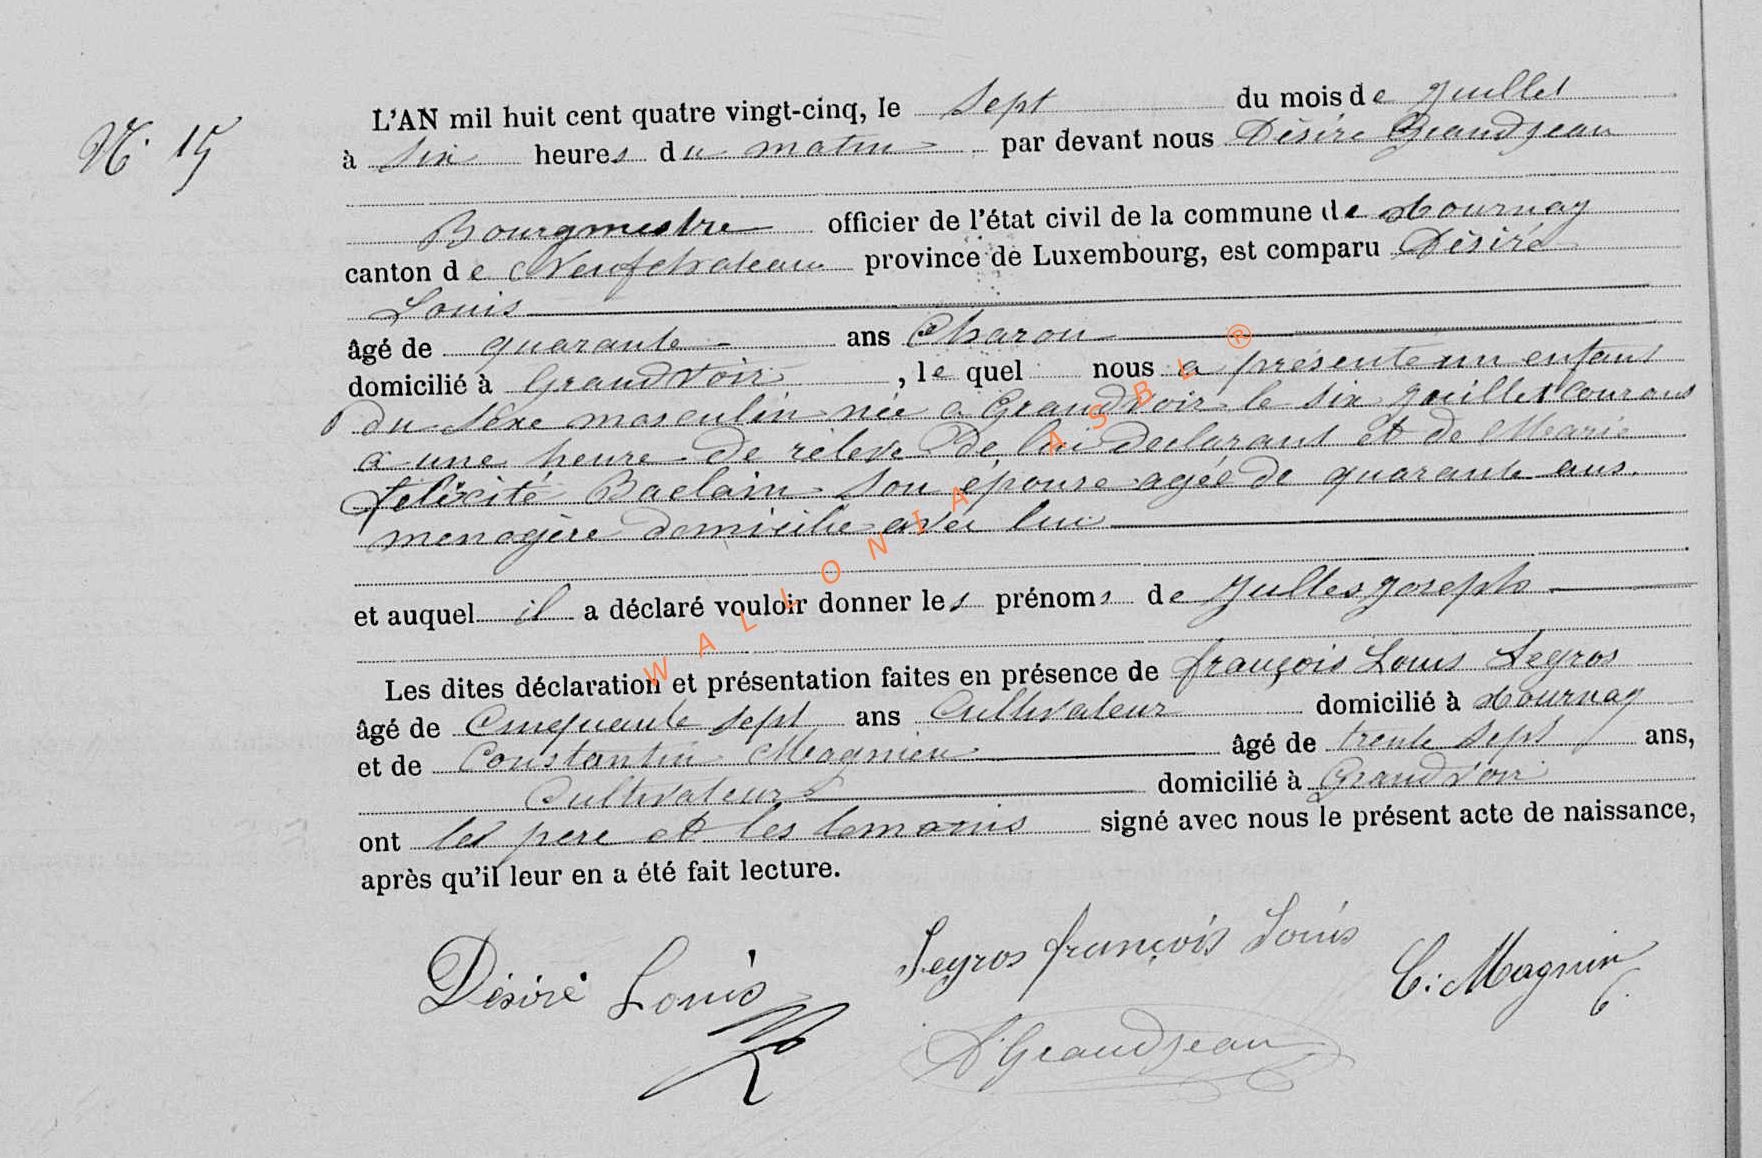 N. 15
L'AN mil huit cent quatre vingt-cinq, le sept du mois de Juillet
à six heures du matin par devant nous Désiré Grandjean
Bourgmestre officier de l'état civil de la commune de Tournay
canton de Neufchateau province de Luxembourg, est comparu Désiré
Louis
âgé de quarante ans Charon
domicilié à Grandvoir, le quel nous a présenté un enfant
du sexe masculin née a Grandvoir le six juillet courant
a une heure de relevé de lui declarant et de Marie
félixcité Baclain son épouse agée de quarante ans
menagère domicilie avec lui
et auquel il a déclaré vouloir donner les prénoms de Julles Joseph
Les dites déclaration et présentation faites en présence de françois Louis Legros
âgé de Cinquante sept ans Cultivateur domicilié à Tournay
et de Constantin Magnien âgé de trente sept ans,
Cultivateur domicilié à Grandvoir
ont les pere et les temoins signé avec nous le présent acte de naissance,
après qu'il leur en a été fait lecture.
Désiré Louis
Legros françois Louis
C. Magnin
D Grandjean
WALLONIA ASBL ®